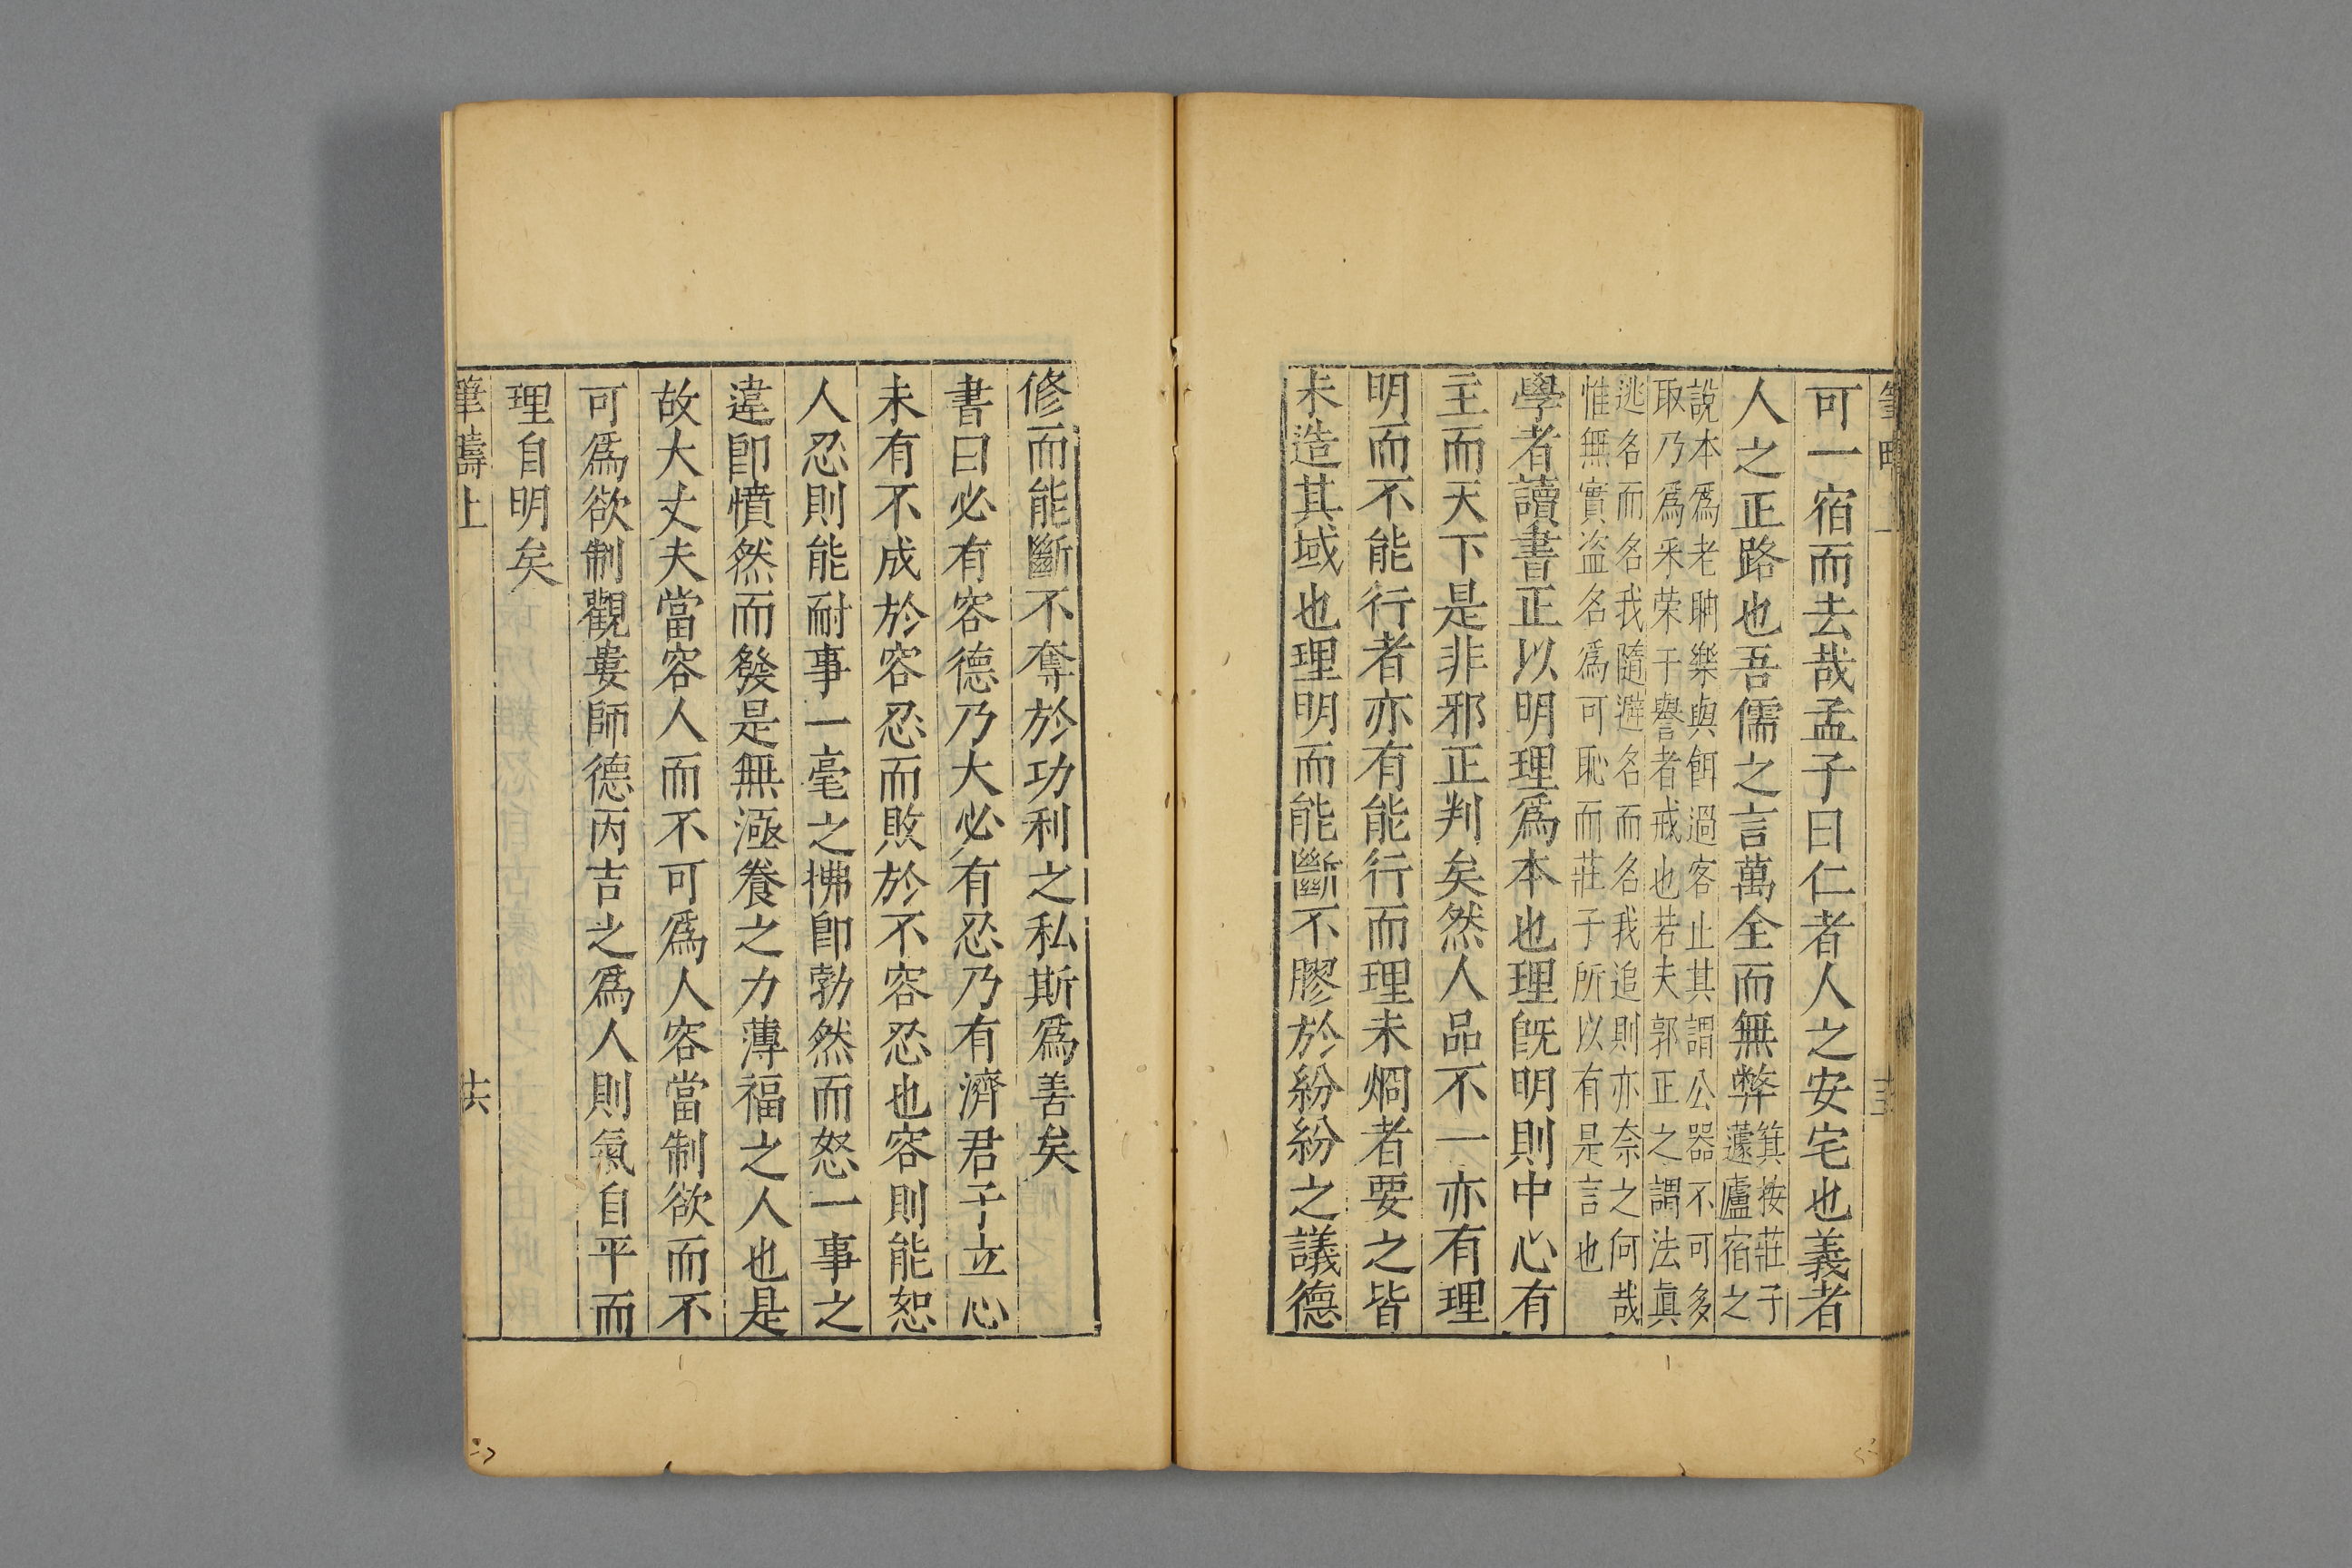 可一宿而去哉孟子曰仁者人之安宅也義者
人之正路也吾儒之言萬全而無弊
箕按莊子
蘧廬宿之
說本爲老聃樂與餌過客止其謂公器不可多
取乃爲釆荣于譽者戒也若夫郭正之謂法眞
逃名而名我隨避名而名我追則亦奈之何哉
惟無實盜名爲可恥而莊子所以有是言也
學者讀書正以明理爲本也理旣明則中心有
主而天下是非邪正判矣然人品不一亦有理
明而不能行者亦有能行而理未烱者要之皆
未造其域也理明而能斷不膠於紛紛之議德
修而能斷不奪於功利之私斯爲善矣
書曰必有容德乃大必有忍乃有濟君子立心
未有不成於容忍而敗於不容忍也容則能恕
人忍則能耐事一毫之拂卽勃然而怒一事之
違卽憤然而發是無涵養之力薄福之人也是
故大丈夫當容人而不可爲人容當制欲而不
可爲欲制觀婁師德丙吉之爲人則氣自平而
理自明矣
筆疇上
十六